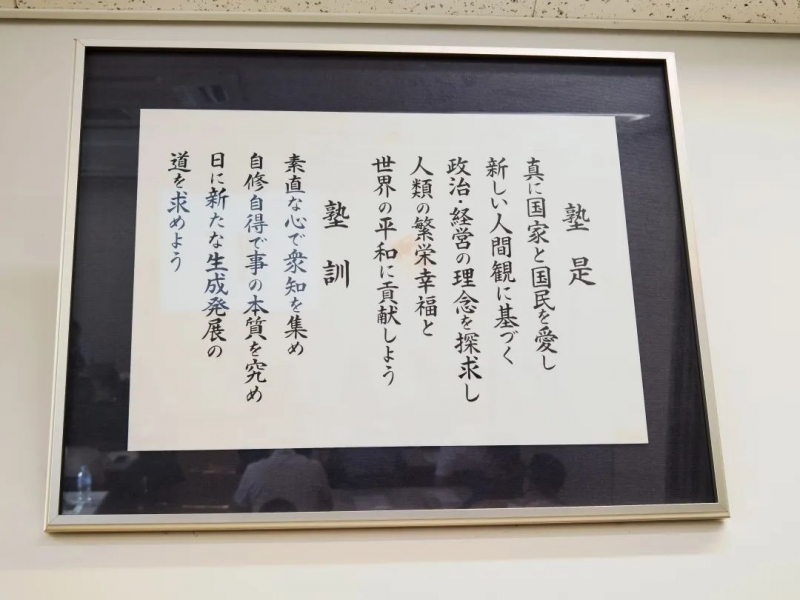 塾是
真に国家と国民を愛し
新しい人間観に基づく
政治・経営の理念を探求し
人類の繁栄幸福と
世界の平和に貢献しよう
塾訓
素直な心で衆知を集め
自修自得で事の本質を究め
日に新たな生成発展の
道を求めよう